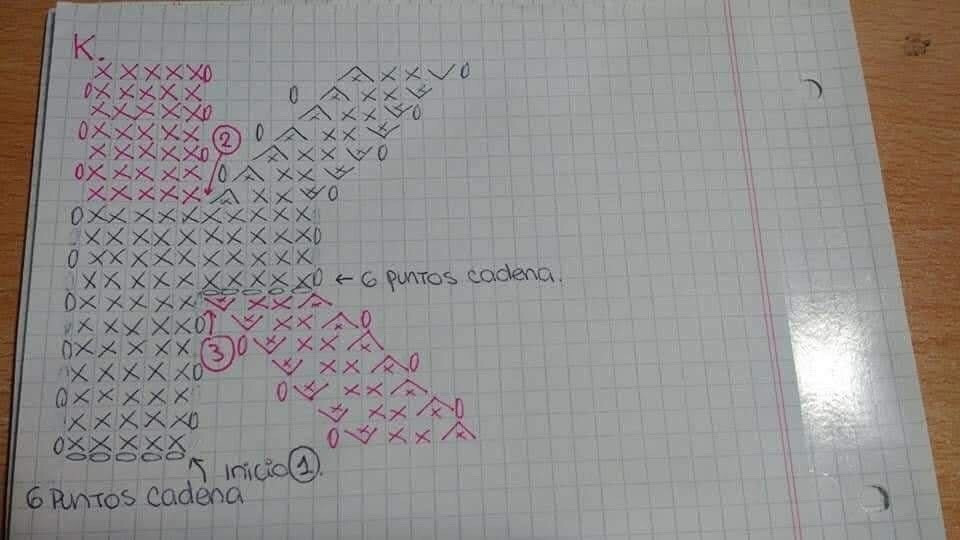 K.
2
← 6 puntos cadena.
3
inicio 1.
6 puntos cadena